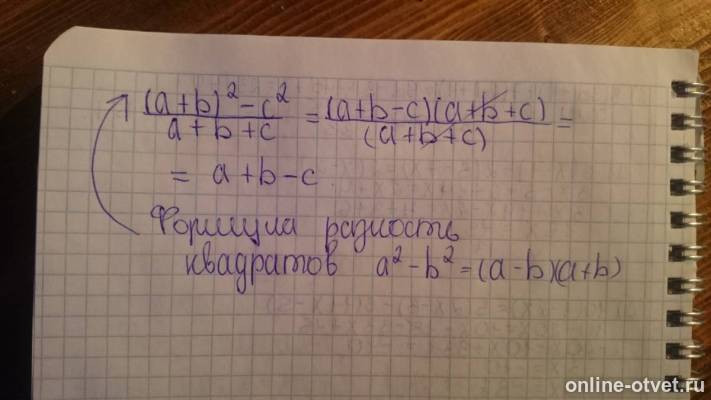 (a+b)² - c² / a+b+c = (a+b-c)(a+b+c) / (a+b+c) =
= a+b-c
Формула разность
квадратов a² - b² = (a-b)(a+b)
online-otvet.ru